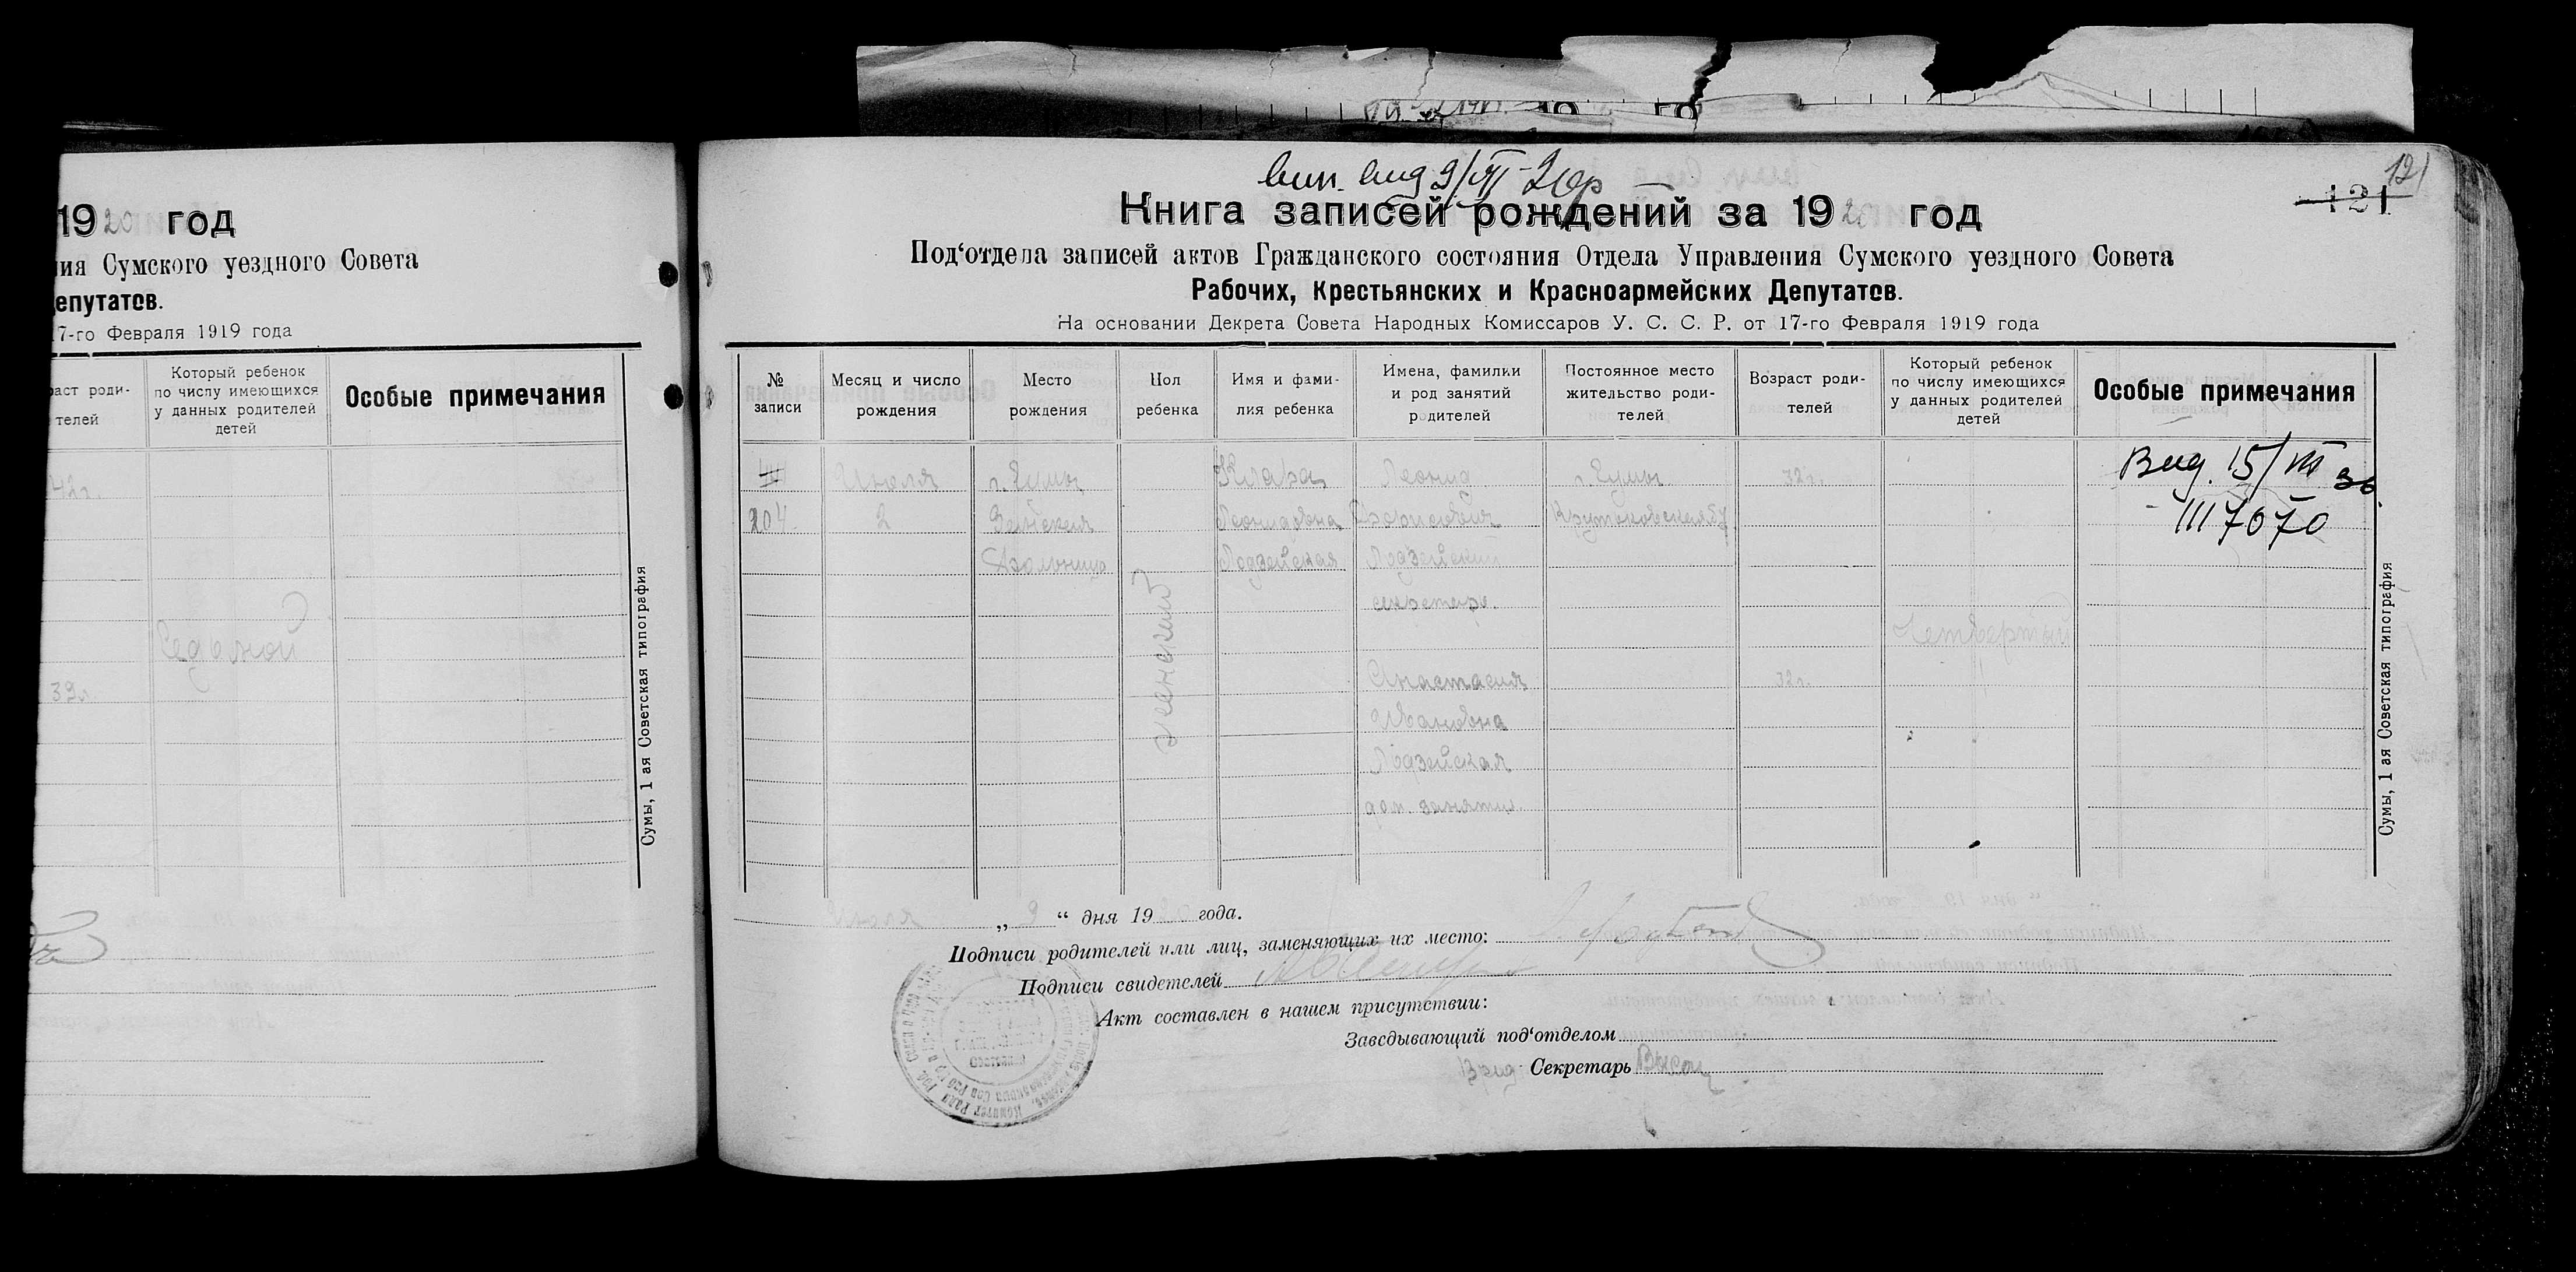 1920 год
ия Сумского уездного Совета
епутатов.
17-го Февраля 1919 года
раст роди-
телей
Который ребенок
по числу имеющихся
у данных родителей
детей
Особые примечания
42г.
Седьмой
39л
Сумы, 1 ая Советская типография
121
121
Книга записей рождений за 192 год
Под‘отдела записей актов Гражданского состояния Отдела Управления Сумского уездного Совета
Рабочих, Крестьянских и Красноармейских Депутатов.
На основании Декрета Совета Народных Комиссаров У. С. С. Р. от 17-го Февраля 1919 года
№
записи
Месяц и число
рождения
Место
рождения
Пол
ребенка
Имя и фами-
лия ребенка
Имена, фамилии
и род занятий
родителей
Постоянное место
жительство роди-
телей
Возраст роди-
телей
Который ребенок
по числу имеющихся
у данных родителей
детей
Особые примечания
204
Июля
2
г. Сумы
Земская
больница
женский
Клара
Леонидовна
Лодзейская
Леонид
Борисович
Лодзейский
секретарь.
Анастасия
Ивановна
Лодзейская
дом. занятия
г. Сумы
32г.
32г.
Четвертый
Вид. 15/III 36
III 7070
Сумы, 1 ая Советская типография
Июля „ 9 “ дня 19 года.
Подписи родителей или лиц, заменяющих их место:
Подписи свидетелей
Акт составлен в нашем присутствии:
Заведывающий под‘отделом
Врид Секретарь